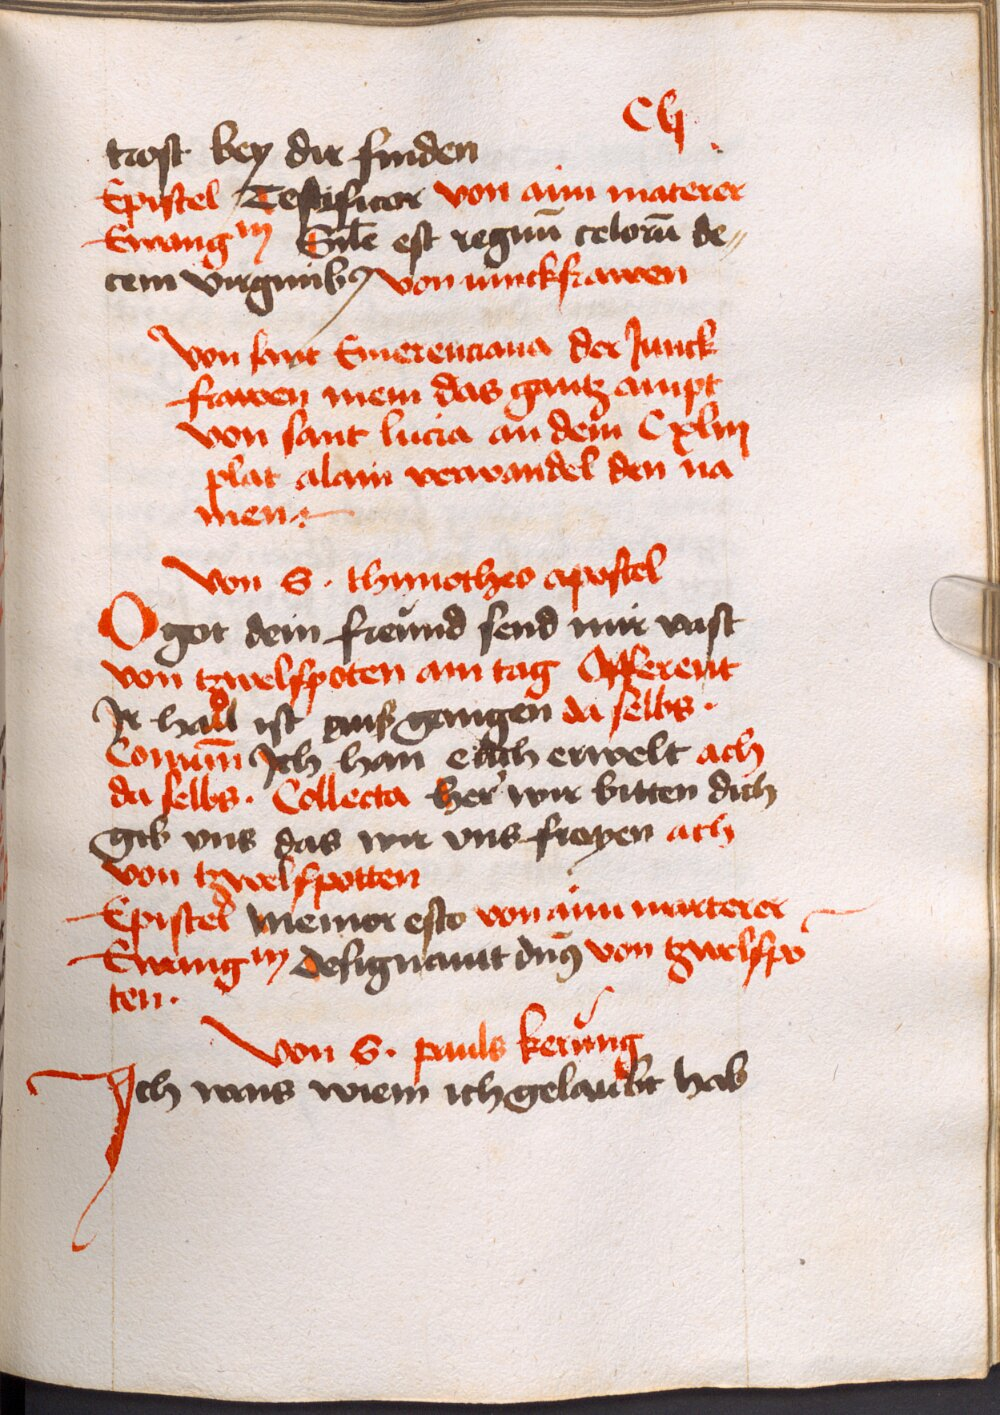 Clj
trost bey dir finden
Epistel Testificor von aim materer
Ewang m Sile est regnū celorū de〃
cem virginibꝯ von iunckfrawen
Von sant Emerenciana der Junck
frawen mein das gantz ampt
von sant lucia an dem Cxlııı
plat alain verwandel den na
men
Von S. thimotheo apostel
O got dein freund send mir vast
von tzwelfpoten am tag Offerent
Jr hall ist auß gangen da selbs.
Comūn Jch han euch erwelt ach
da selbs. Collecta her wir bitten dich
gib vns das wir vns freyen ach
von tzwelfpotten
Epistel Memor esto von aim marterer
Ewang m Designauit dnꝯ von tzwelfpo
ten.
Von S. pauls kerung
Jch wais wiem ich gelaubt hab